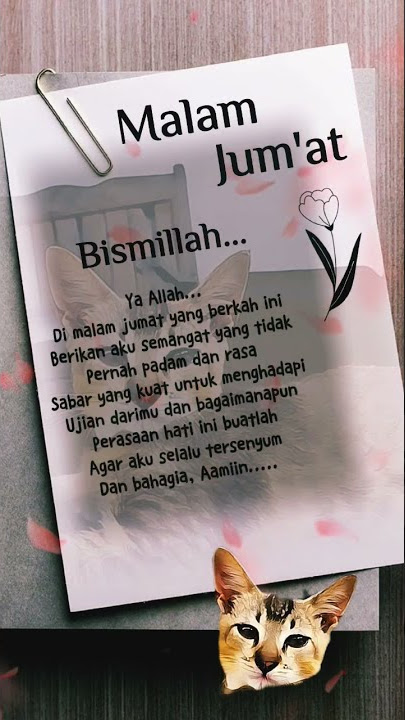 Malam
Jum'at
Bismillah...
Ya Allah...
Di malam jumat yang berkah ini
Berikan aku semangat yang tidak
Pernah padam dan rasa
Sabar yang kuat untuk menghadapi
Ujian darimu dan bagaimanapun
Perasaan hati ini buatlah
Agar aku selalu tersenyum
Dan bahagia, Aamiin.....